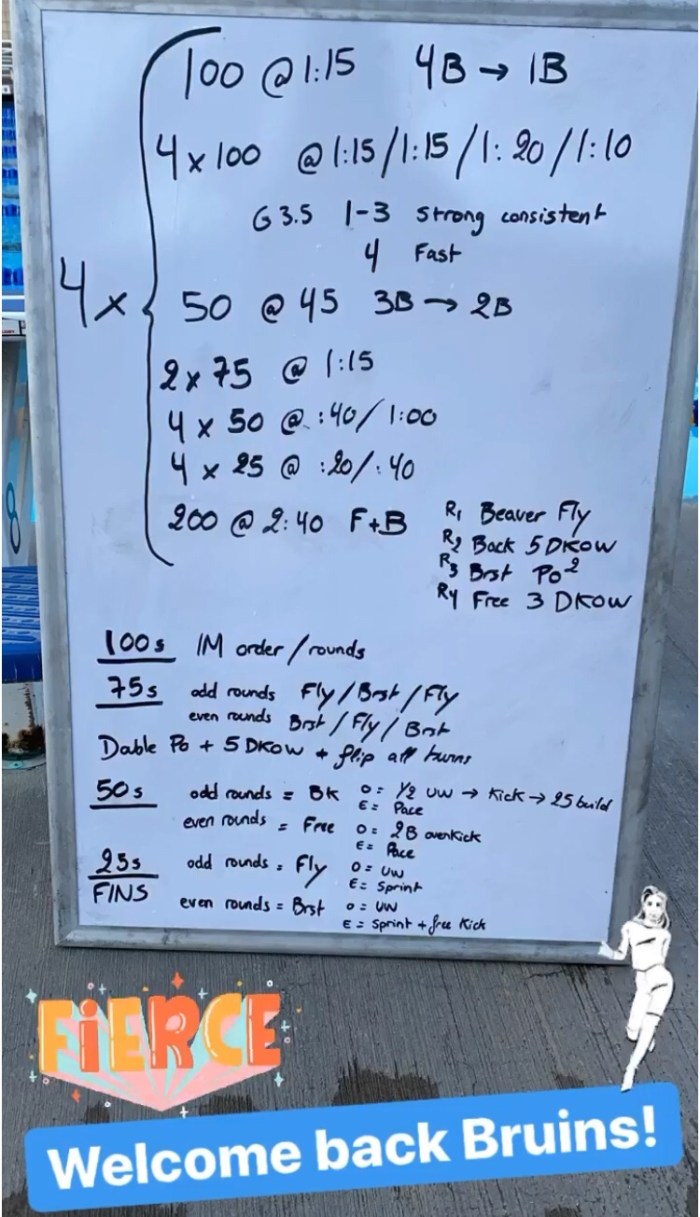 100 @ 1:15 4B → 1B
4 x 100 @ 1:15 / 1:15 / 1:20 / 1:10
G 3.5 1-3 strong consistent
4 Fast
4 x { 50 @ 45 3B → 2B
2 x 75 @ 1:15
4 x 50 @ :40 / 1:00
4 x 25 @ :20 / :40
200 @ 2:40 F+B
R1 Beaver Fly
R2 Back 5 DKOW
R3 Brst Po²
R4 Free 3 DKOW
100s IM order / rounds
75s odd rounds Fly / Brst / Fly
even rounds Brst / Fly / Brst
Dable Po + 5 DKOW + flip all turns
50s odd rounds = BK O = 1/2 UW → Kick → 25 build
E = Pace
even rounds = Free O = 2B overkick
E = Pace
25s odd rounds = Fly O = UW
E = Sprint
FINS
even rounds = Brst O = UW
E = Sprint + free Kick
8
FiERCE
Welcome back Bruins!